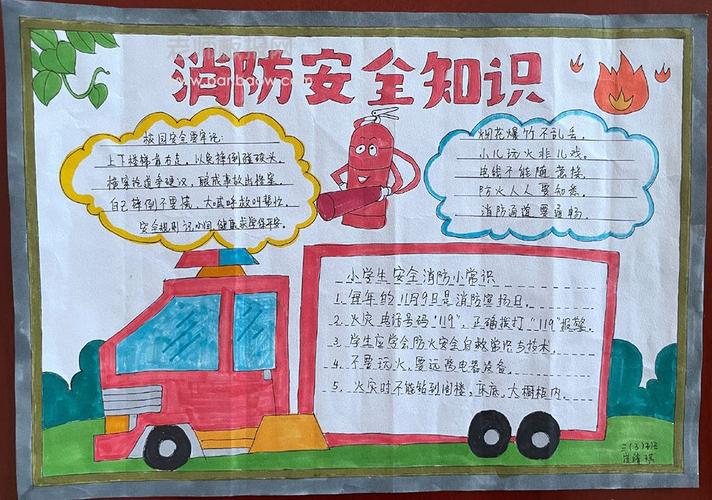 www.banbaow.com
消防安全知识
校园安全要牢记
上下楼梯靠右走,以免摔倒强碰头。
自己摔倒不要慌,大喊呼救叫帮忙。
安全规则记心间,健康成长保平安。
烟花爆竹不乱丢。
小儿玩火非儿戏。
电线不能随意接。
防火人人要知悉。
消防通道要通畅。
小学生安全消防小常识
1. 每年的11月9日是消防宣传日。
2. 火灾电话号码"119",正确拨打"119"报警。
3. 学生应学会防火安全自救常识与技术。
4. 不要玩火,要远离电器设备。
5. 火灾时不能钻到阁楼、床底、大橱柜内。
二(3)班